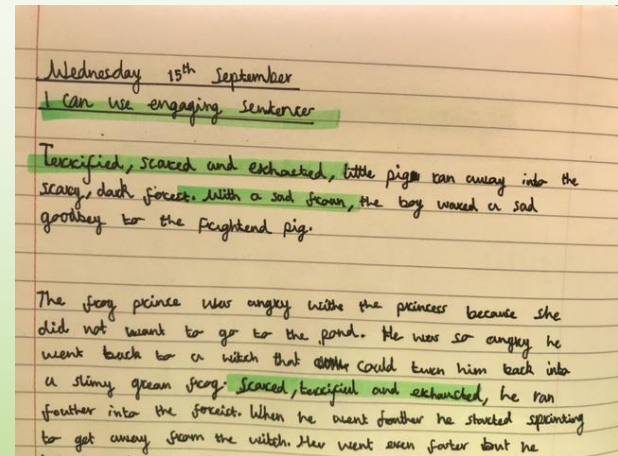 Wednesday 15th September
I can use engaging sentences
Terrified, scared and exhausted, little pig ran away into the
scary, dark forest. With a sad frown, the boy waved a sad
goodbey to the frightend pig.
The frog prince was angry withe the princess because she
did not want to go to the pond. He was so angry he
went back to a witch that could turn him back into
a slimy grean frog. Scared, terrifiul and exhaucted, he ran
fouther into the foreist. When he went fouther he started sprinting
to get away from the witch. Her went even farter but he